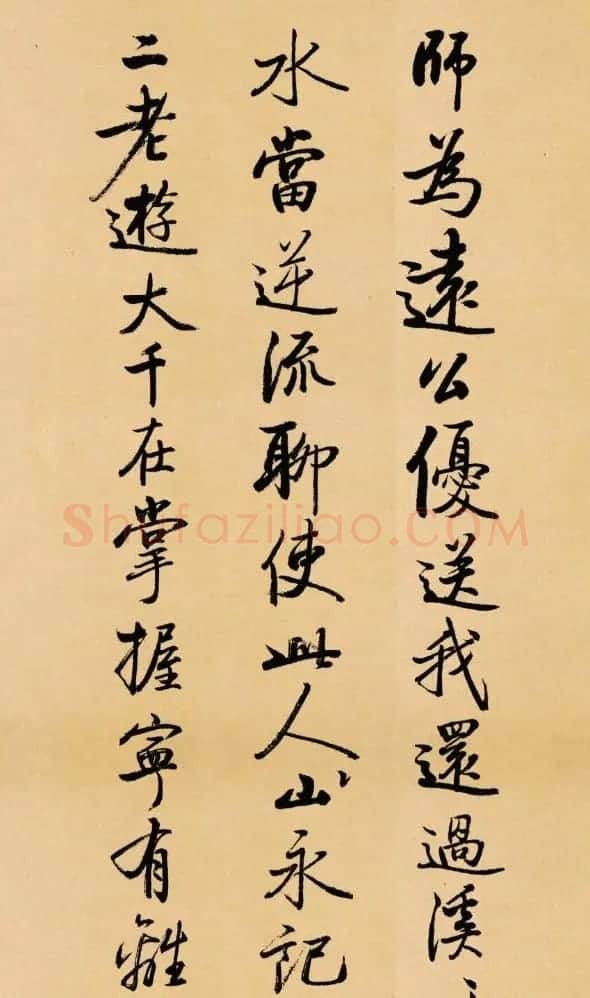 師為遠公優送我還過溪々
水當逆流聊使此人山永記
二老遊大千在掌握寧有離
Shufaziliao.COM